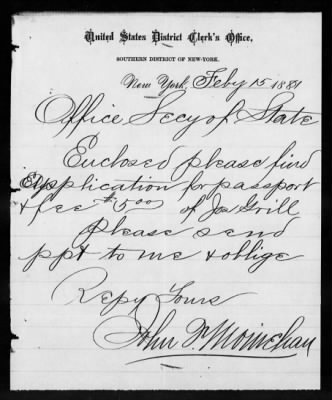 United States District Clerk's Office,
SOUTHERN DISTRICT OF NEW-YORK.
New York, Feby 15 1881
Office Secy of State
Enclosed please find
Application for passport
& fee $5.00 of Jos Grill
please send
ppt to me & oblige
Respy Yours
John F. Moinehan